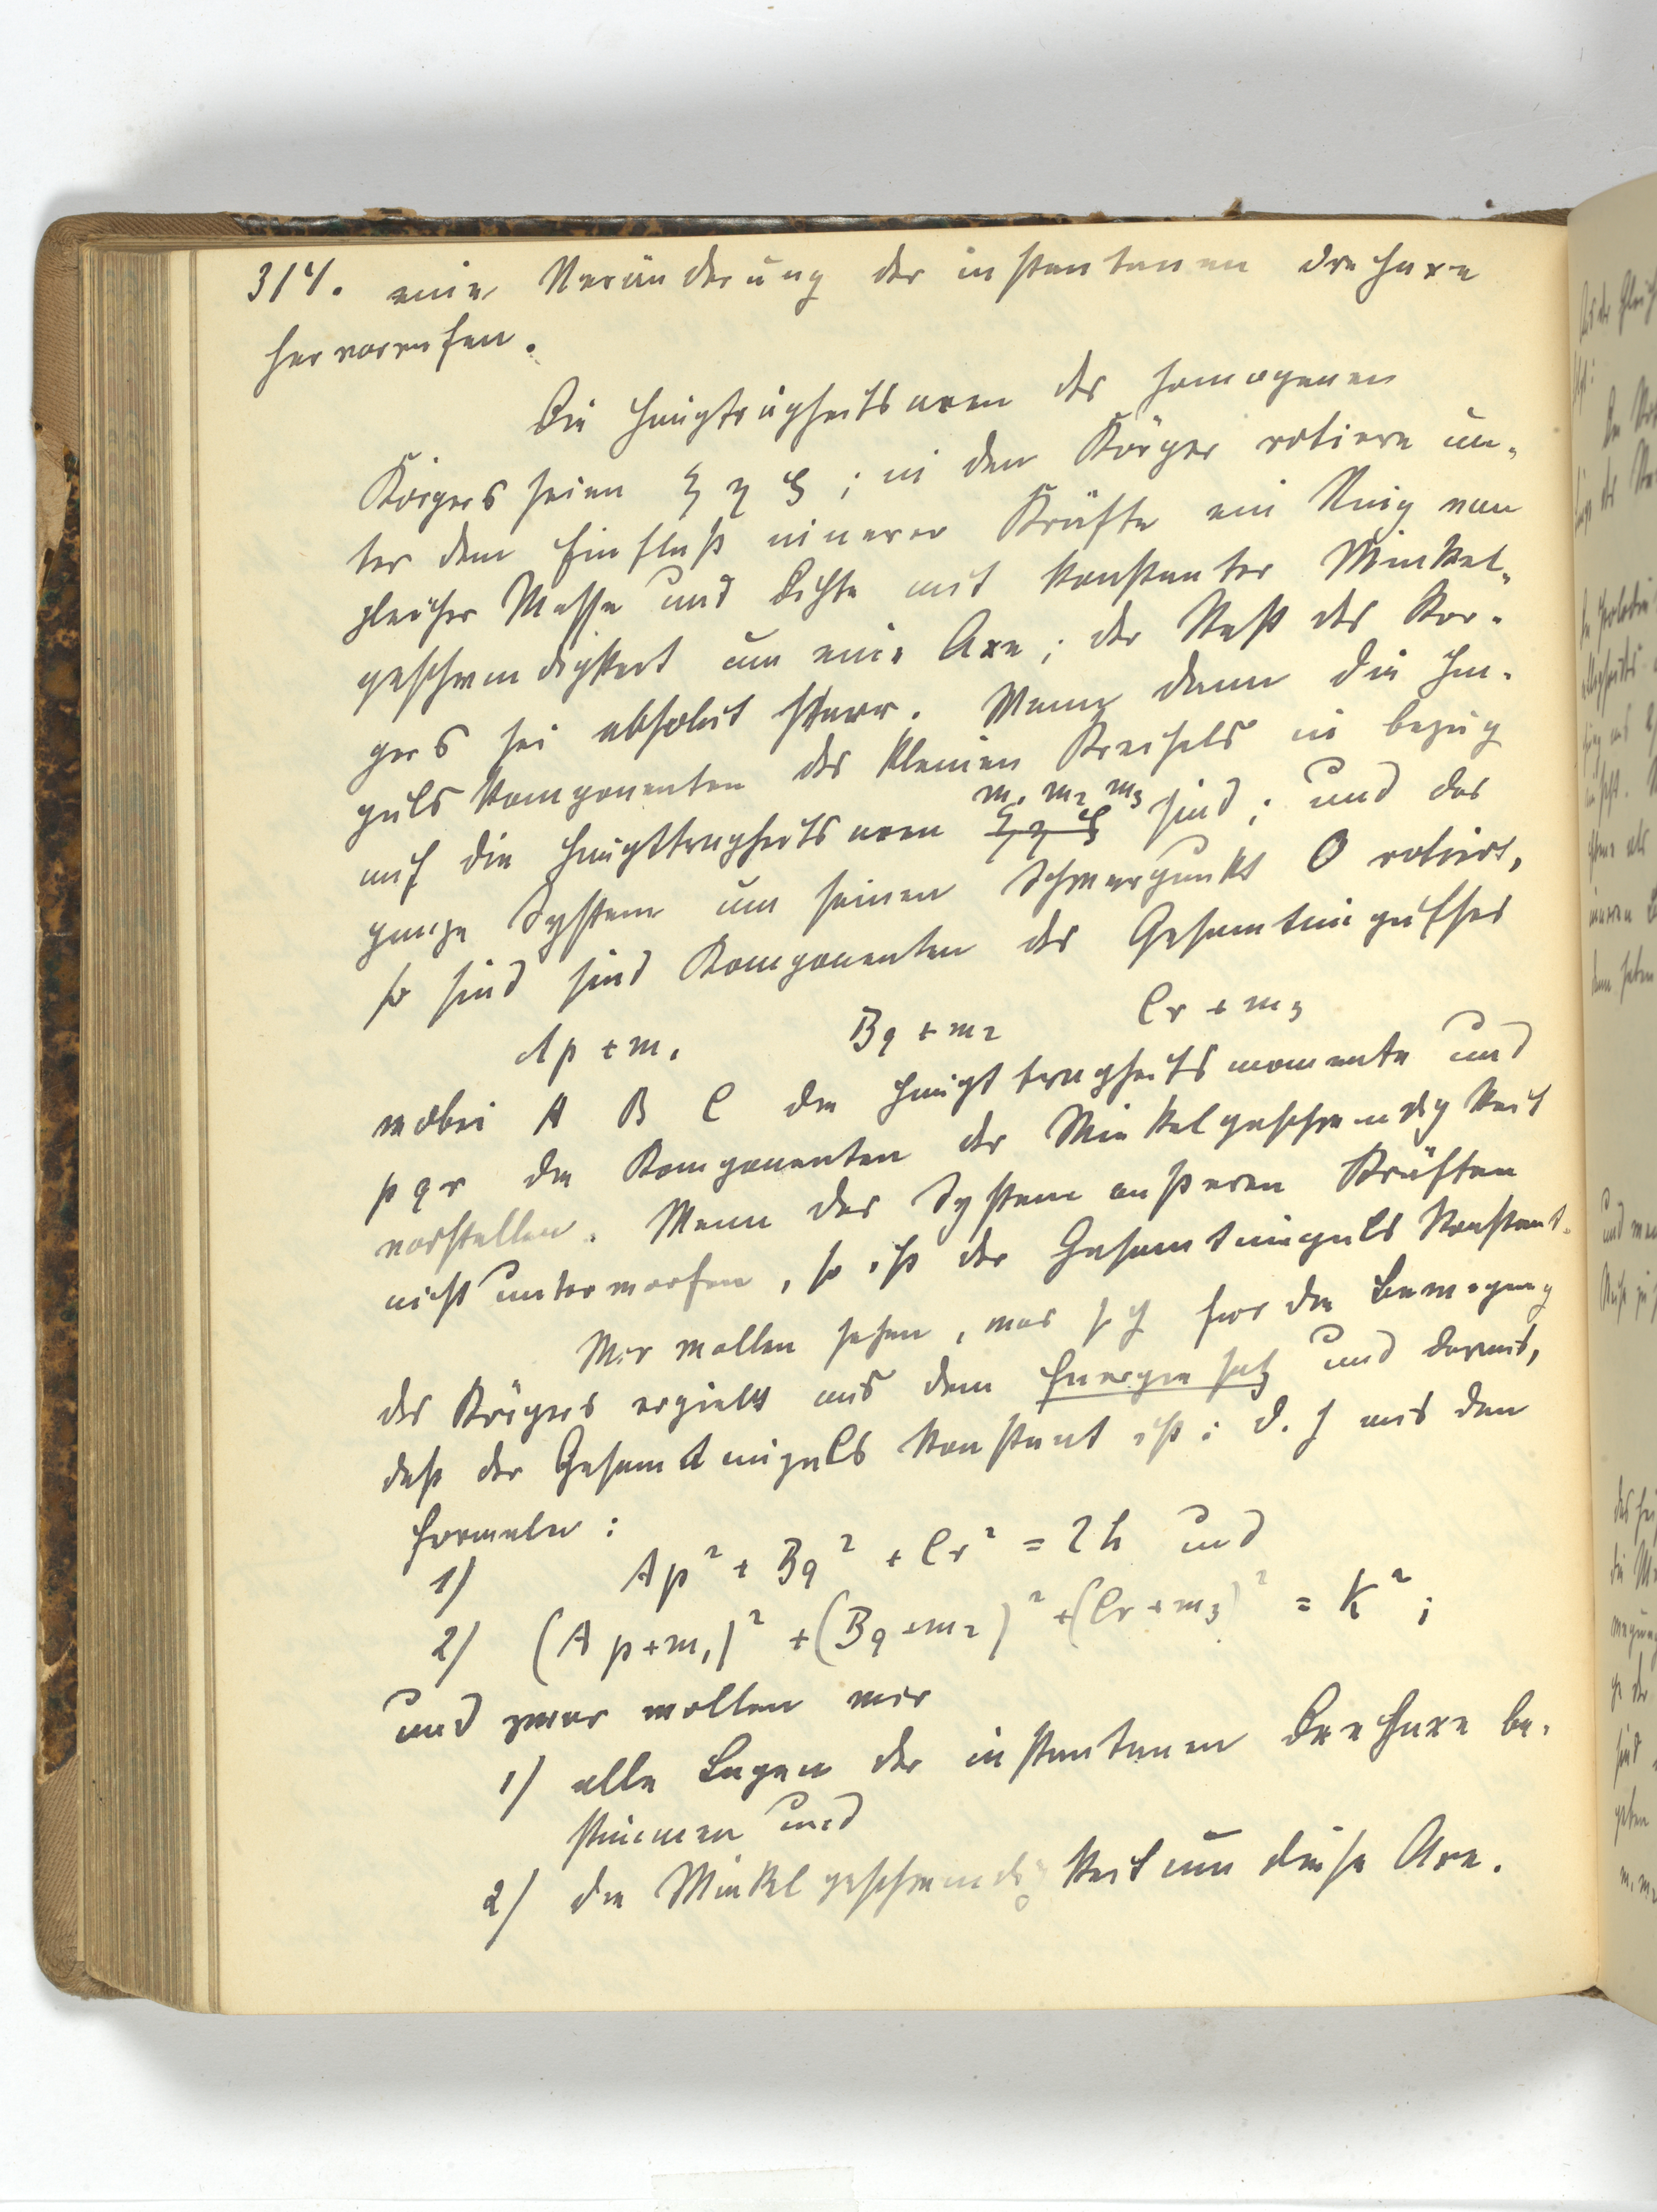 314. eine Veränderung der instantanen Drehaxe
hervorrufen.
Die Hauptträgheitsaxen des homogenen
Körpers seien ξ η ζ ; in dem Körper rotiere un-
ter dem Einfluß innerer Kräfte ein Ring von
gleicher Masse und Dichte mit konstanter Winkel-
geschwindigkeit um eine Axe ; der Rest des Kör-
pers sei absolut starr. Wenn dann die Im-
puls komponenten des kleinen Kreisels in bezug
auf die Hauptträgheitsaxen ξ η ζ m₁ m₂ m₃ sind ; und das
ganze System um seinen Schwerpunkt O rotiert,
so sind sind Komponenten des Gesamtimpulses
Ap + m₁ Bq + m₂ Cr + m₃
wobei A B C die Hauptträgheitsmomente und
p q r die Komponenten der Winkelgeschwindigkeit
vorstellen. Wenn das System äußeren Kräften
nicht unterworfen, so ist der Gesamtimpuls konstant.
Wir wollen sehen, was sich für die Bewegung
des Körpers ergiebt aus dem Energiesatz und daraus,
daß der Gesamtimpuls konstant ist ; d. h aus den
Formeln :
1) Ap² + Bq² + Cr² = 2h und
2) (Ap + m₁)² + (Bq + m₂)² + (Cr + m₃)² = k² ;
und zwar wollen wir
1) alle Lagen der instantanen Drehaxe be-
stimmen und
2) die Winkelgeschwindigkeit um diese Axe.